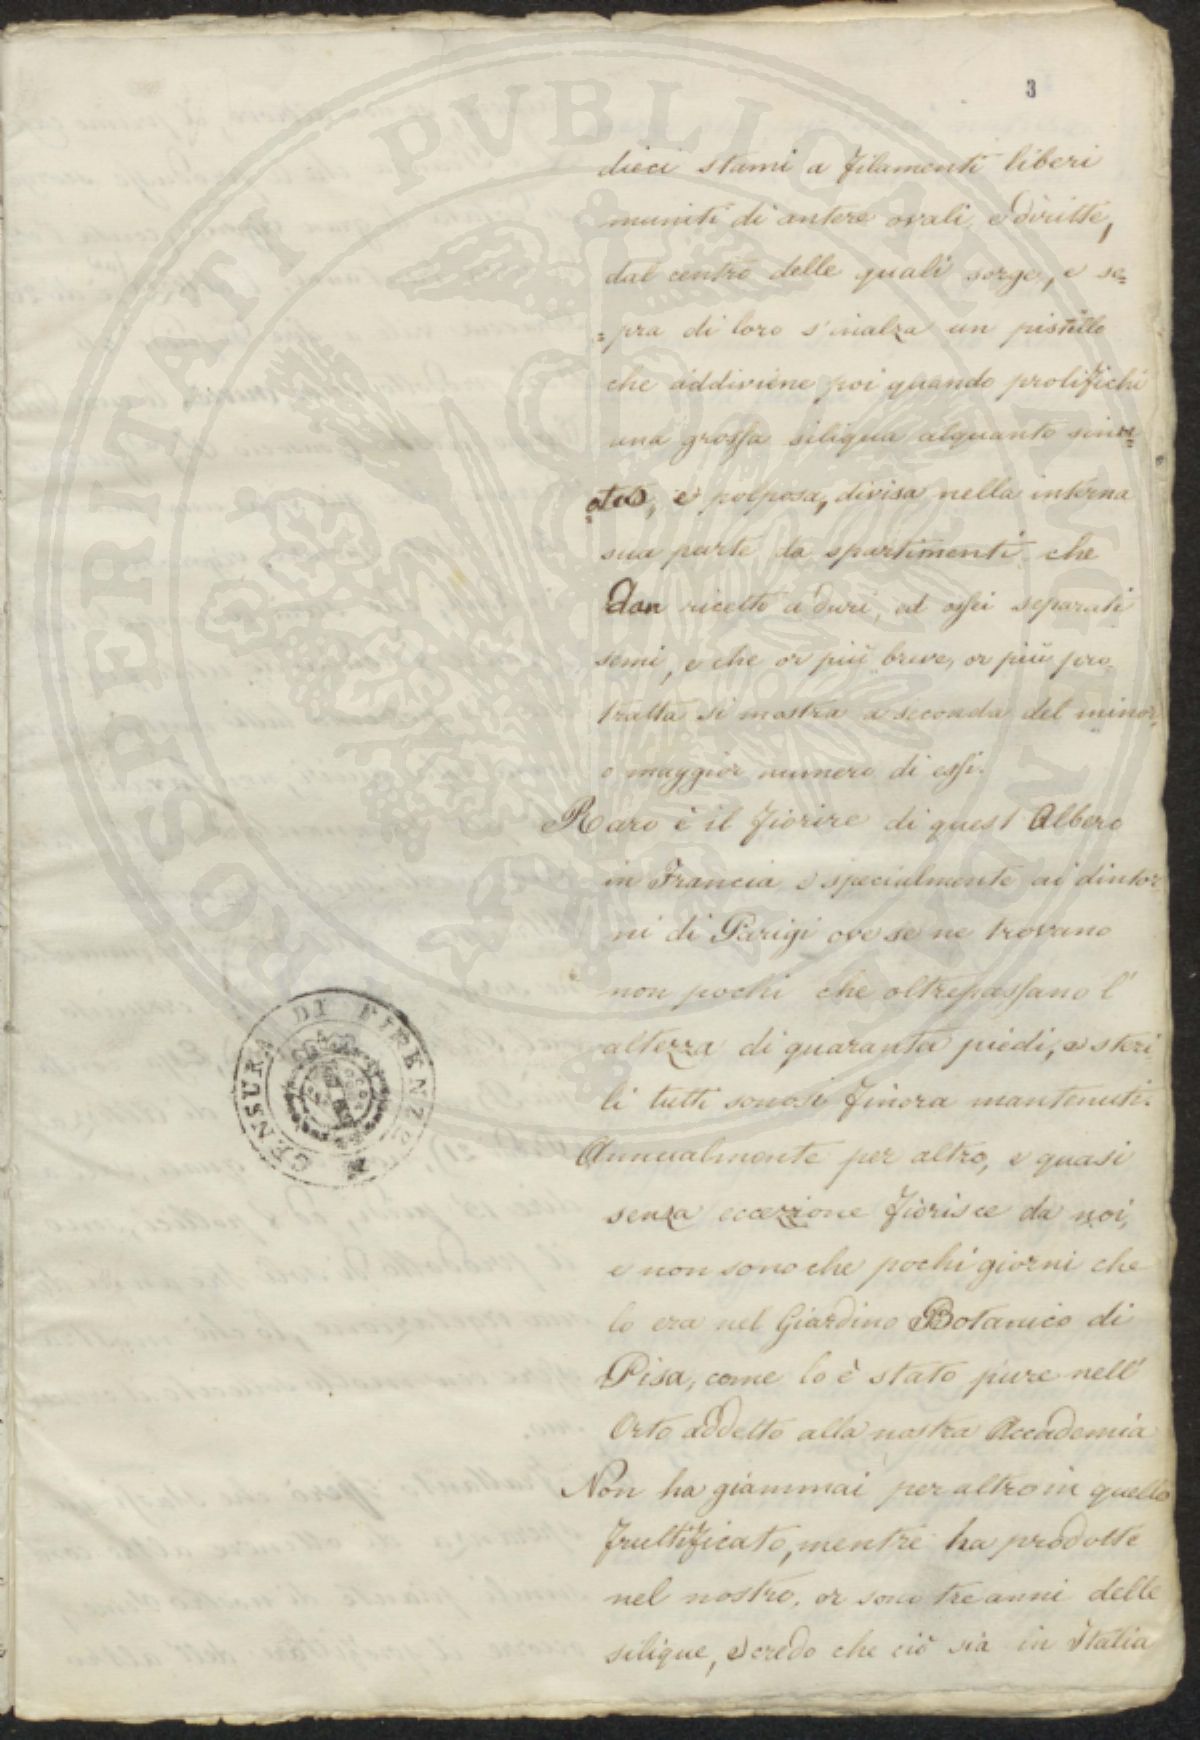 3
dieci stami a filamenti liberi
muniti di antere ovali, e diritte,
dal centro delle quali sorge, e so=
=pra di loro s'inalza un pistillo
che addiviene poi quando prolifichi
una grossa siliqua alquanto sinu=
ata, e polposa, divisa nella interna
sua parte da spartimenti che
dan ricetto a duri, ed ossei separati
semi, e che or più breve, or più pro=
tratta si mostra a seconda del minor,
o maggior numero di essi.
Raro è il fiorire di quest'Albero
in Francia e specialmente ai dintor=
ni di Parigi ove se ne trovano
non pochi che oltrepassano l'
altezza di quaranta piedi, e steri
li tutti sonosi finora mantenuti.
Annualmente per altro, e quasi
senza eccezzione fiorisce da noi,
e non sono che pochi giorni che
lo era nel Giardino Botanico di
Pisa, come lo è stato pure nell'
Orto addetto alla nostra Accademia
Non ha giammai per altro in quello
fruttificato, mentre ha prodotte
nel nostro, or sono tre anni delle
silique, e credo che ciò sia in Italia
CENSURA DI FIRENZE
PROSPERITATI PUBLICAE AUGENDAE